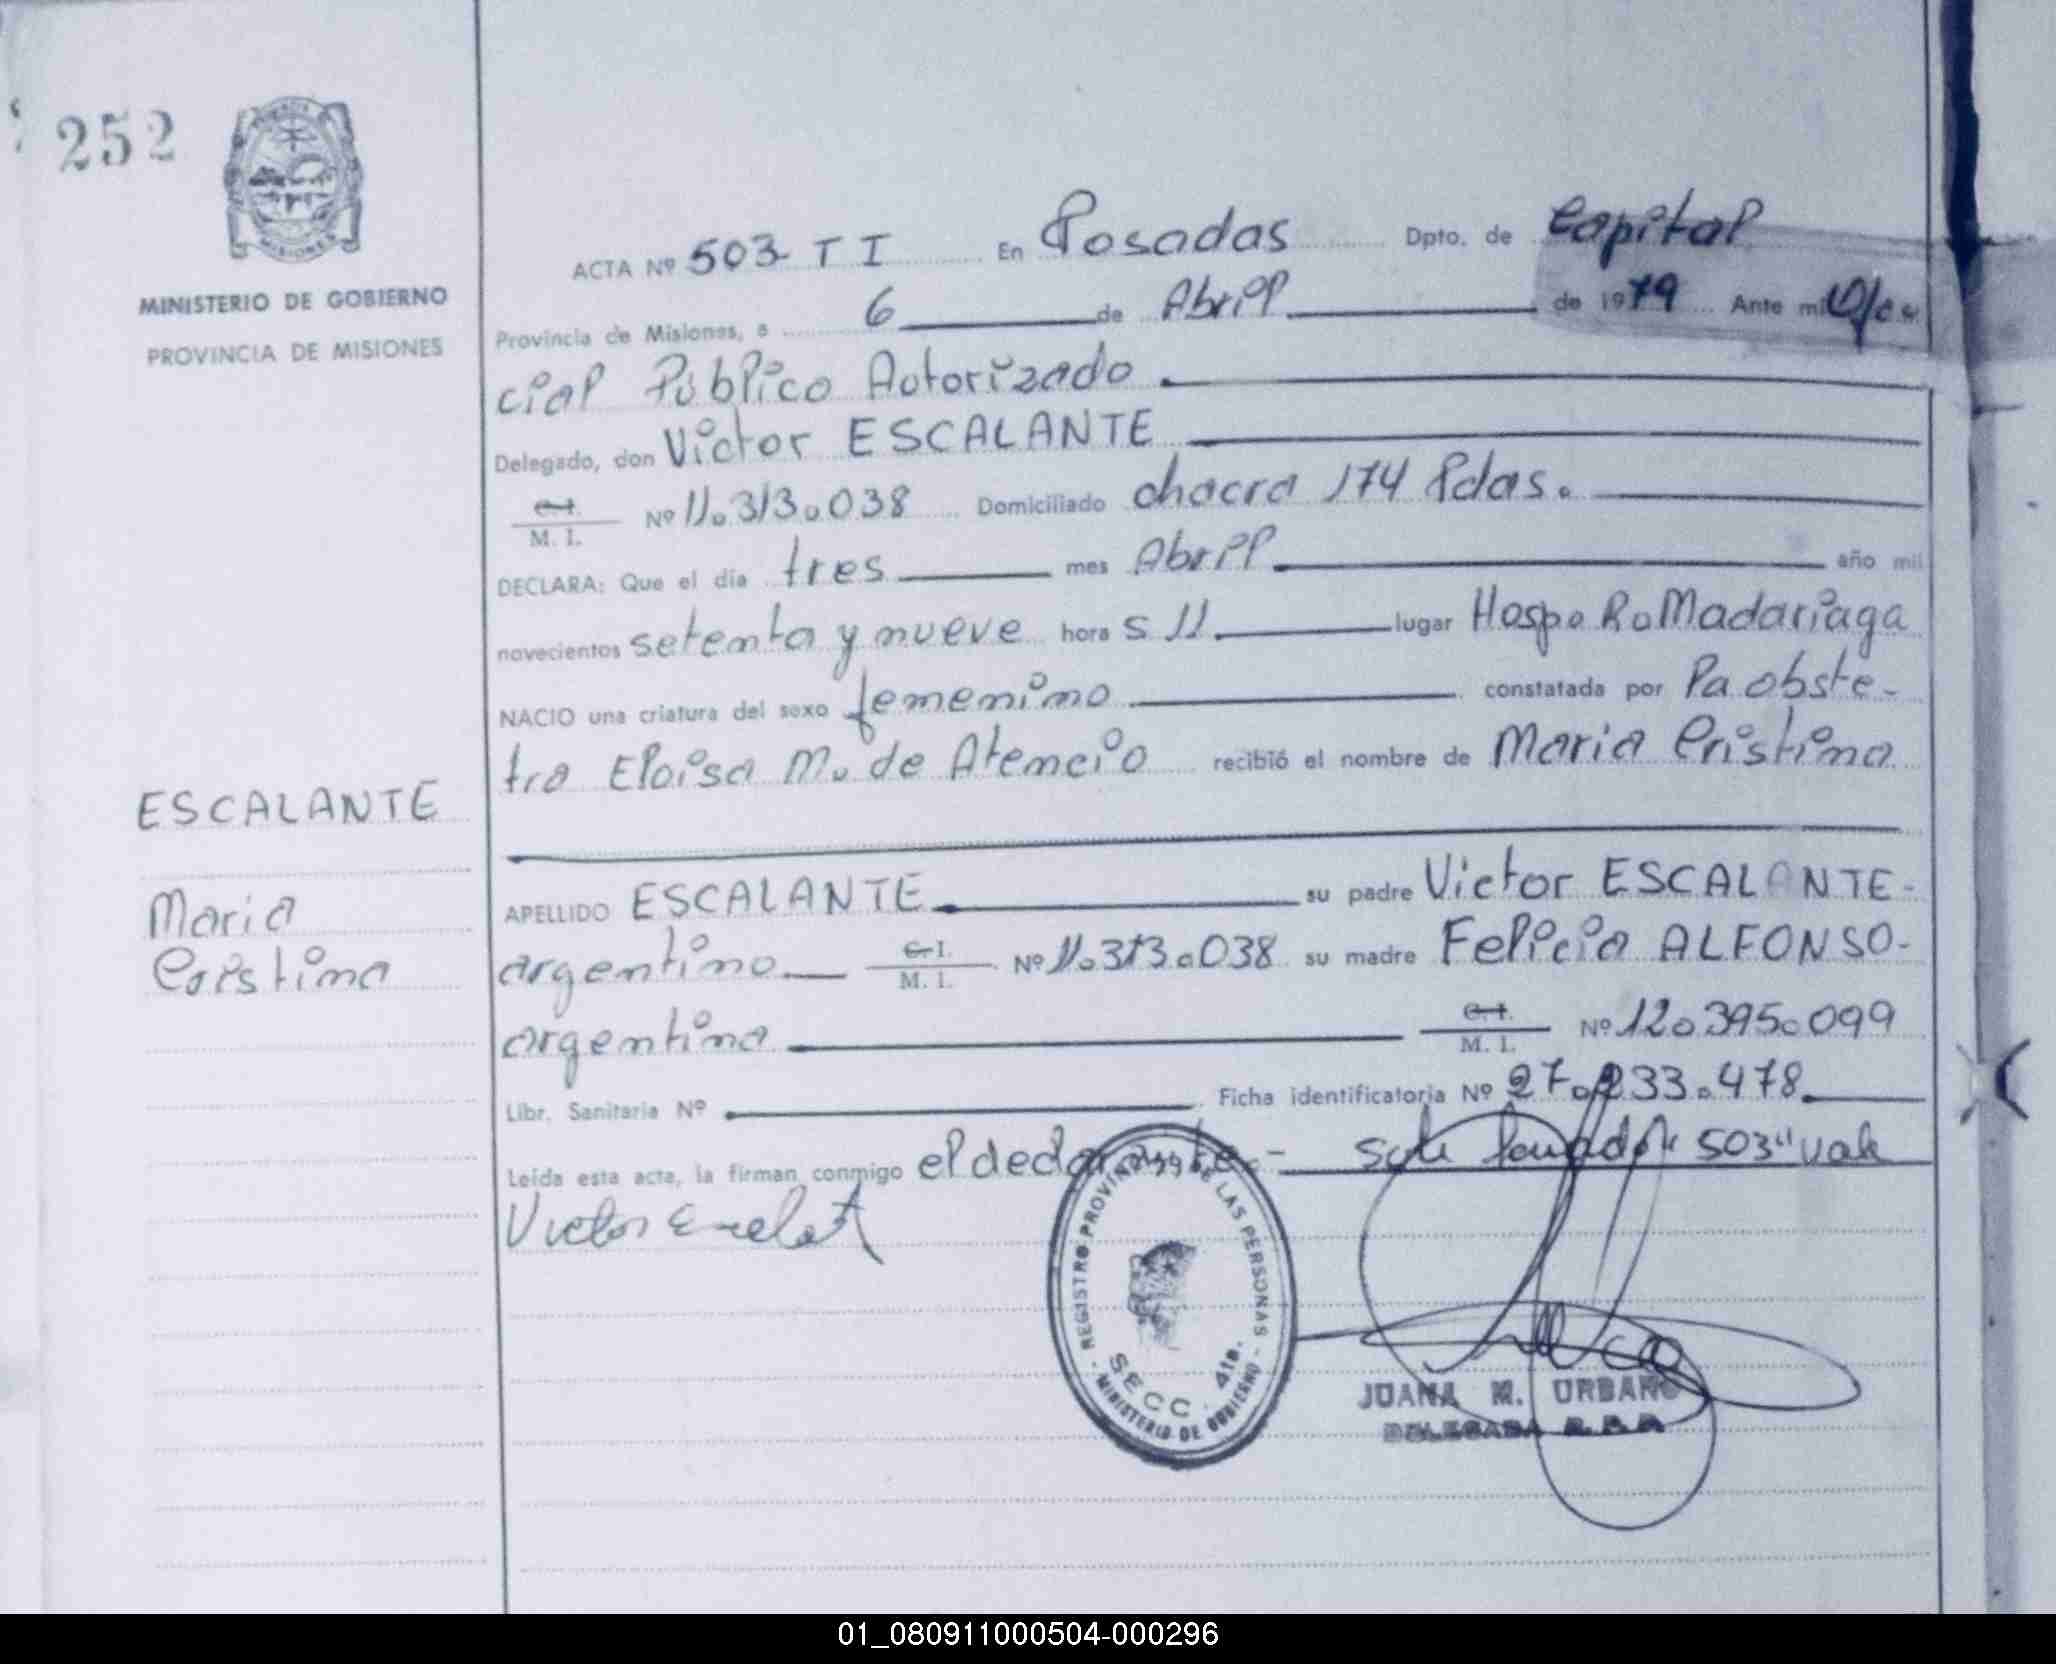 252
MINISTERIO DE GOBIERNO
PROVINCIA DE MISIONES
ACTA Nº 503 T I En Posadas Dpto. de Capital
Provincia de Misiones, a 6 de Abril de 1979 Ante mi Ofi
cial Público Autorizado
Delegado, don Victor ESCALANTE
C.I. M. I. Nº 11.313.038 Domiciliado chacra 174 Pdas.
DECLARA: Que el día tres mes Abril año mil
novecientos setenta y nueve hora s 11 lugar Hosp. R. Madariaga
NACIO una criatura del sexo femenino constatada por la obste-
tra Eloisa M. de Atencio recibió el nombre de Maria Cristina
ESCALANTE
Maria
Cristina
APELLIDO ESCALANTE su padre Victor ESCALANTE-
argentino C.I. M. I. Nº 11.313.038 su madre Felicia ALFONSO-
argentina C.I. M. I. Nº 12.395.099
Libr. Sanitaria Nº Ficha identificatoria Nº 27.233.478
Leída esta acta, la firman conmigo el declarante- 503" vale
Victor
REGISTRO PROVINCIAL DE LAS PERSONAS
SECC. 4ta.
MINISTERIO DE GOBIERNO
JUANA M. URBANO
DELEGADA
01_080911000504-000296